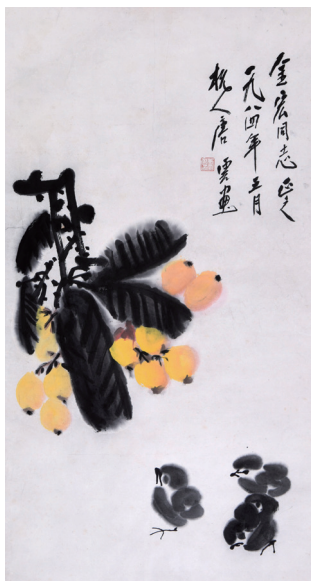 金宏同志正之
一九八四年五月
杭人唐云画